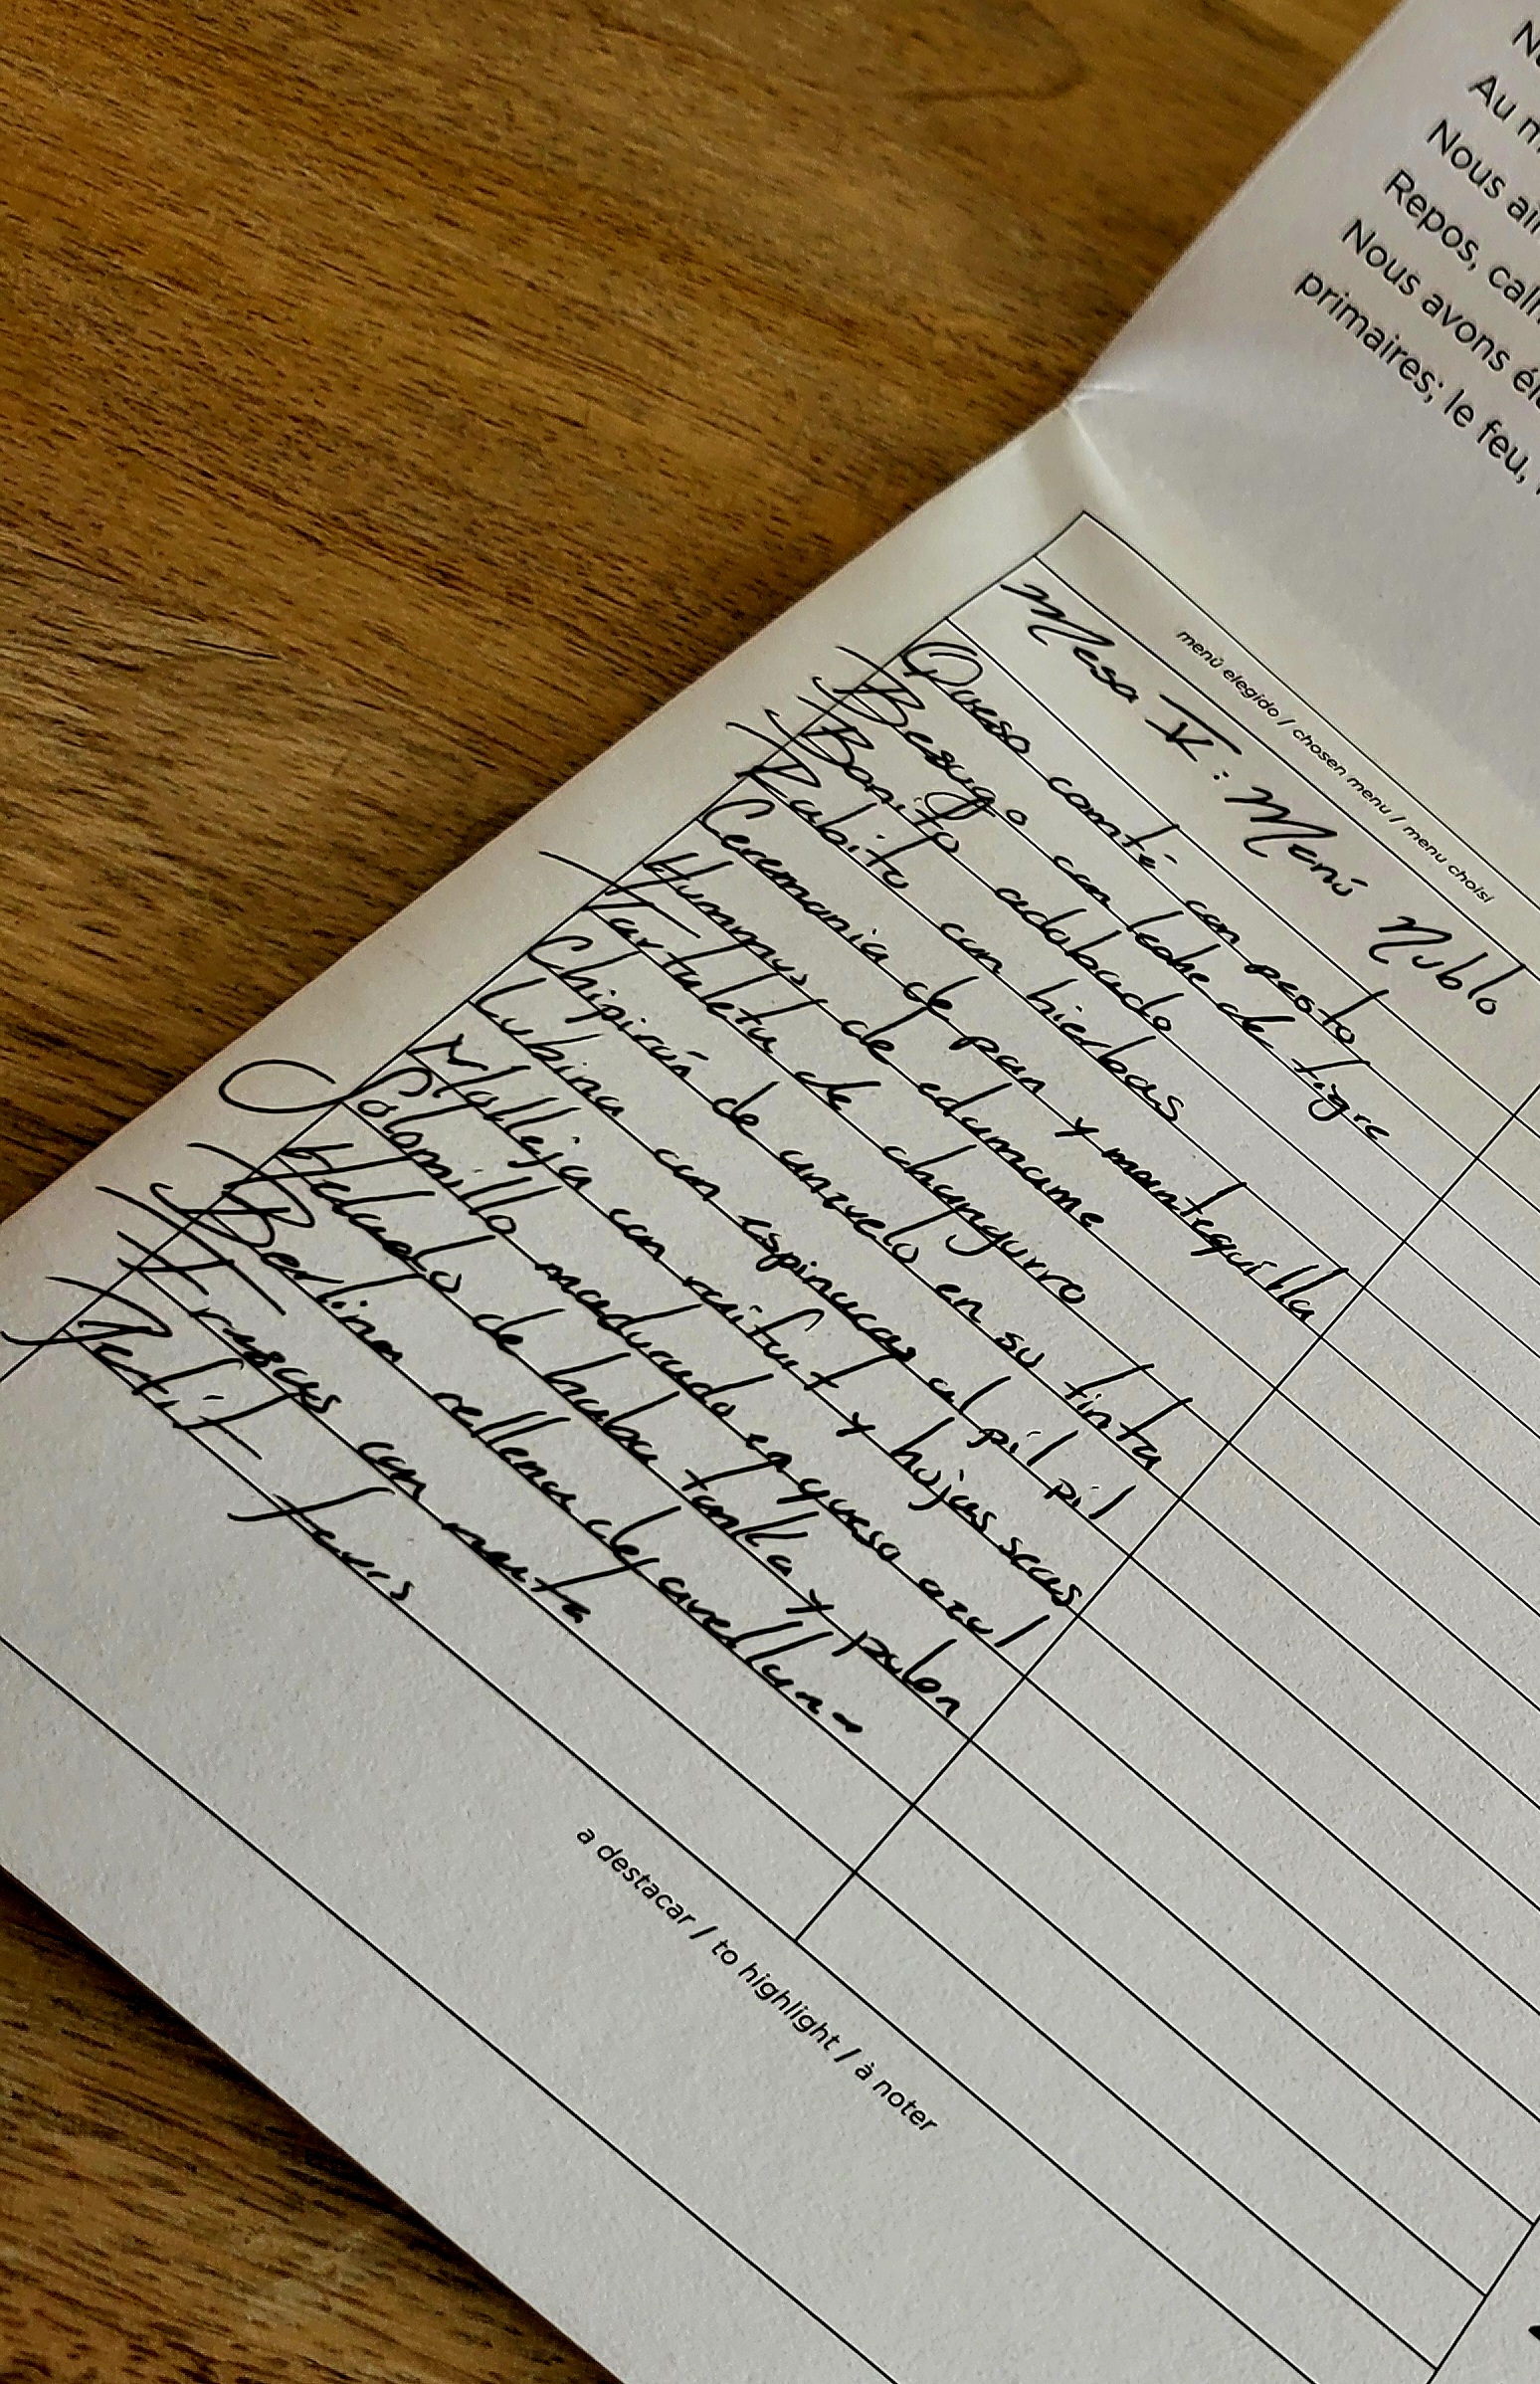 Au m
Nous ai
Repos, cal
Nous avons él
primaires; le feu,
menú elegido / chosen menu / menu choisi
Mesa IV: Menú Nublo
Queso comté con pesto
Besugo con leche de tigre
Bonito adobado
Rabito con hierbas
Ceremonia de pan y mantequilla
Hummus de edamame
Tartaleta de changurro
Chipirón de anzuelo en su tinta
Lubina con espinacas al pil pil
Molleja con raifort y hojas secas
Solomillo madurado en queso azul
Helado de haba tonka y polen
Berlina rellena de avellana
Fresas con nata
Petit fours
a destacar / to highlight / à noter